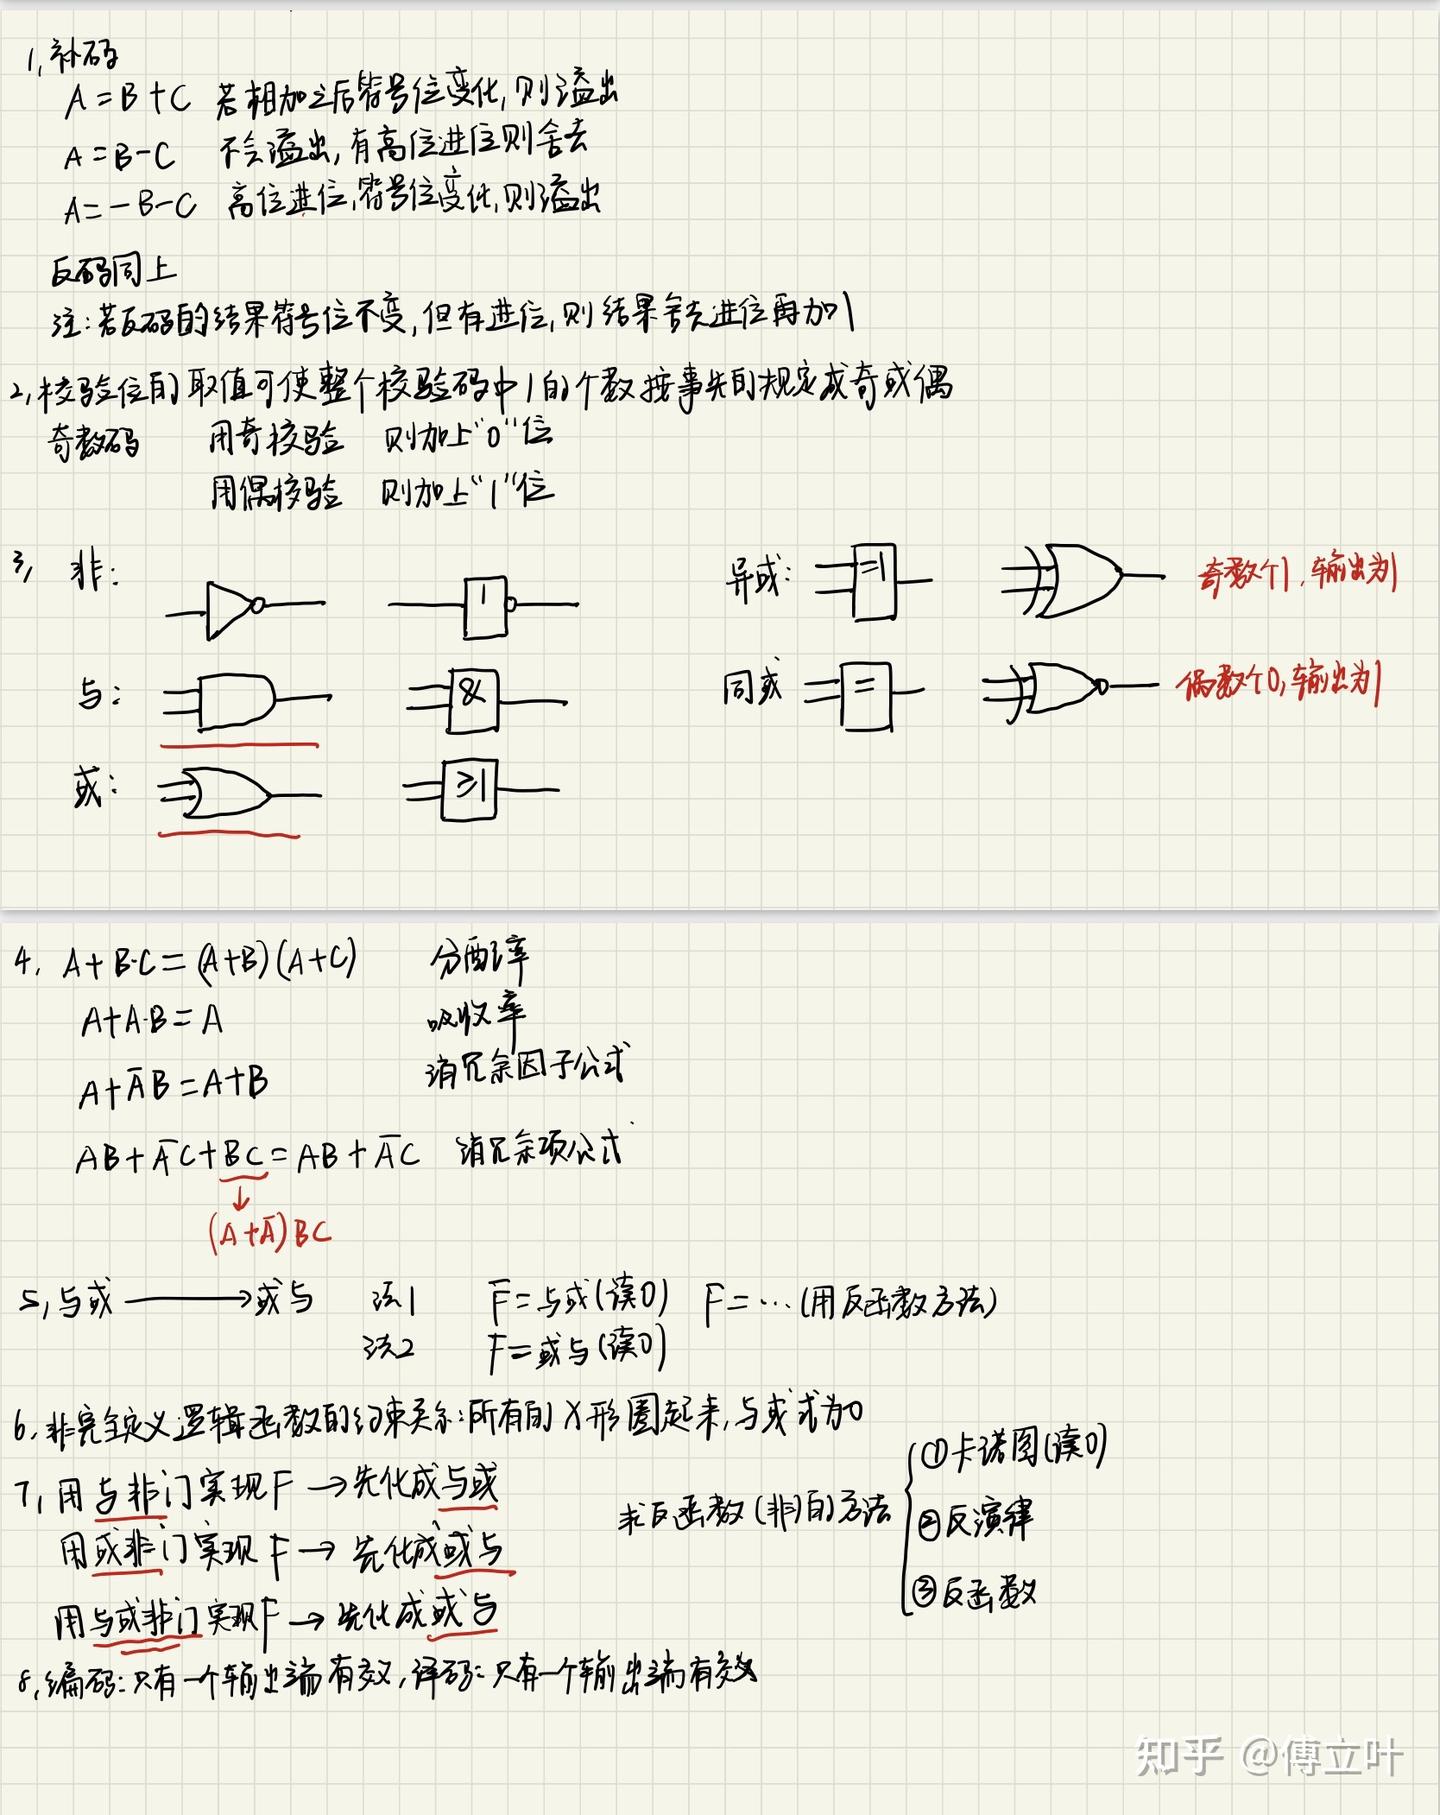 1, 补码
A = B + C 若相加之后符号位变化, 则溢出
A = B - C 不会溢出, 有高位进位则舍去
A = - B - C 高位进位, 符号位变化, 则溢出
反码同上
注: 若反码的结果符号位不变, 但有进位, 则结果舍去进位再加1
2, 校验位的取值可使整个校验码中1的个数按事先的规定成奇或偶
奇数码 用奇校验 则加上"0"位
用偶校验 则加上"1"位
3, 非: 1
异或: =1 奇数个1, 输出为1
与: &
同或 = 偶数个0, 输出为1
或: ≥1
4, A + B·C = (A+B)(A+C) 分配率
A + A·B = A 吸收率
A + A̅B = A + B 消冗余因子公式
AB + A̅C + BC = AB + A̅C 消冗余项公式
↓
(A + A̅) BC
5, 与或 → 或与 法1 F̅ = 与或(读0) F = … (用反函数方法)
法2 F = 或与(读0)
6, 非完全定义逻辑函数的约束关系: 所有的X形圈起来, 与或式为0
7, 用与非门实现F → 先化成与或
用或非门实现F → 先化成或与
用与或非门实现F → 先化成或与
求反函数(非)的方法
①卡诺图(读0)
②反演律
③反函数
8, 编码: 只有一个输出端有效, 译码: 只有一个输出端有效
知乎 @傅立叶